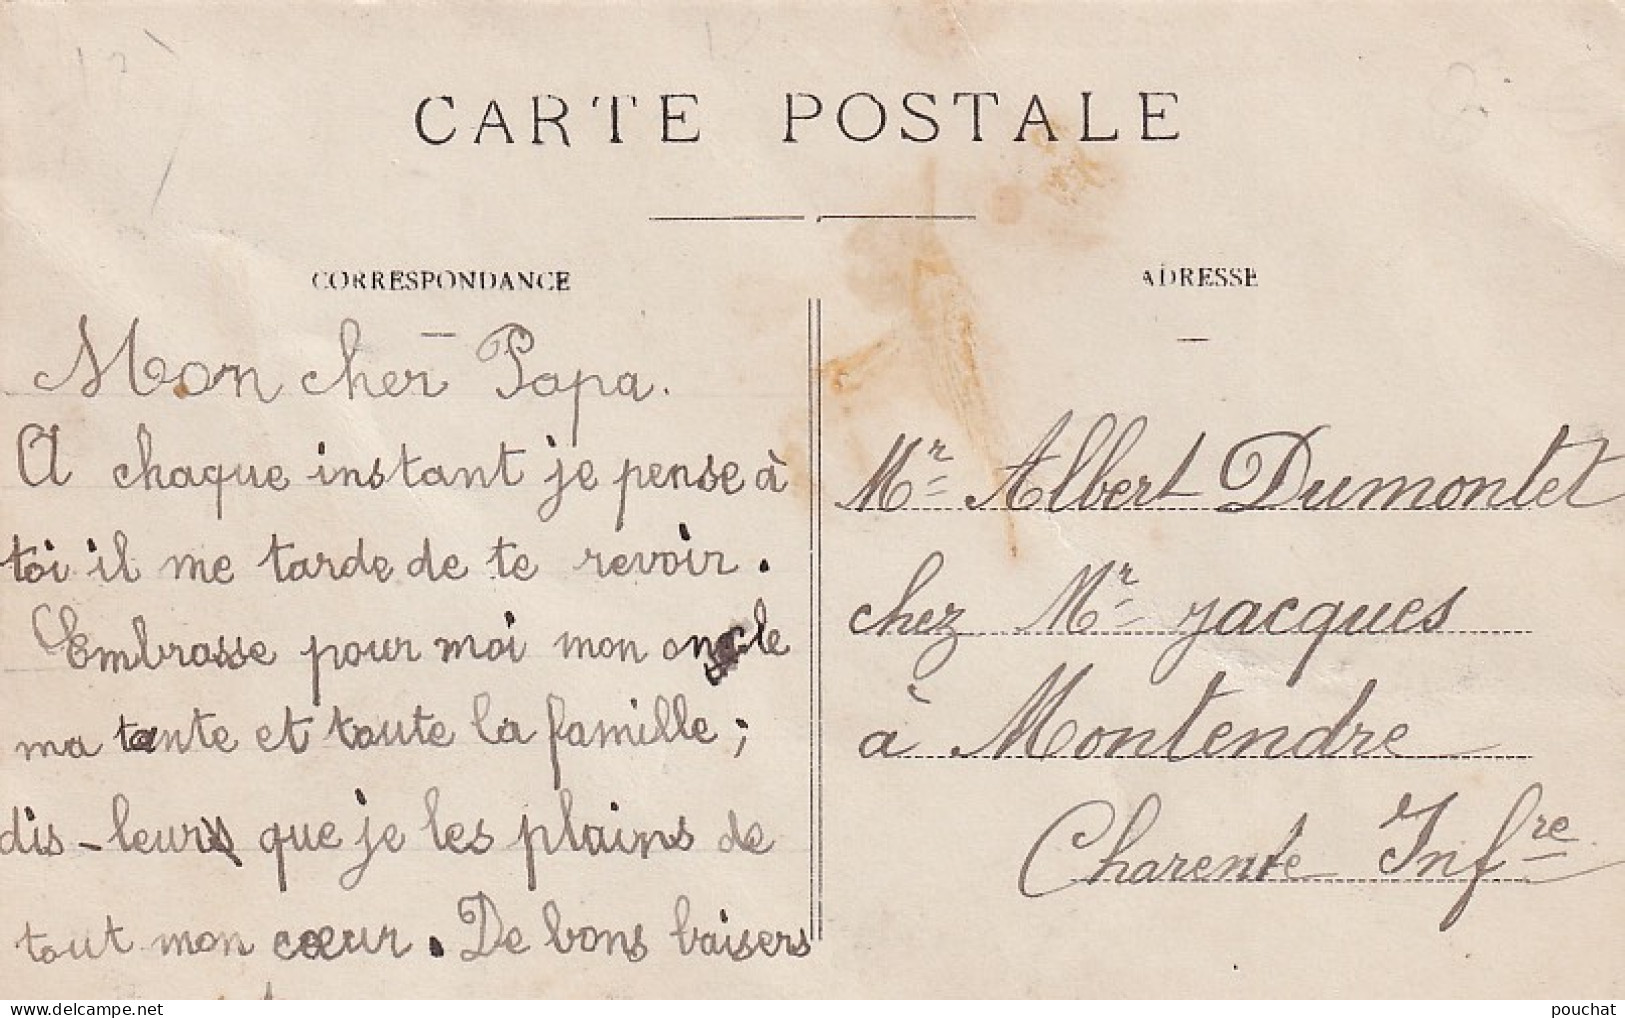 CARTE POSTALE
CORRESPONDANCE
Mon cher Papa.
A chaque instant je pense à
toi il me tarde de te revoir.
Embrasse pour moi mon oncle
ma tante et toute la famille;
dis-leur que je les plains de
tout mon cœur. De bons baisers
ADRESSE
Mr Albert Dumontet
chez Mr Jacques
à Montendre
Charente Infre
pouchat